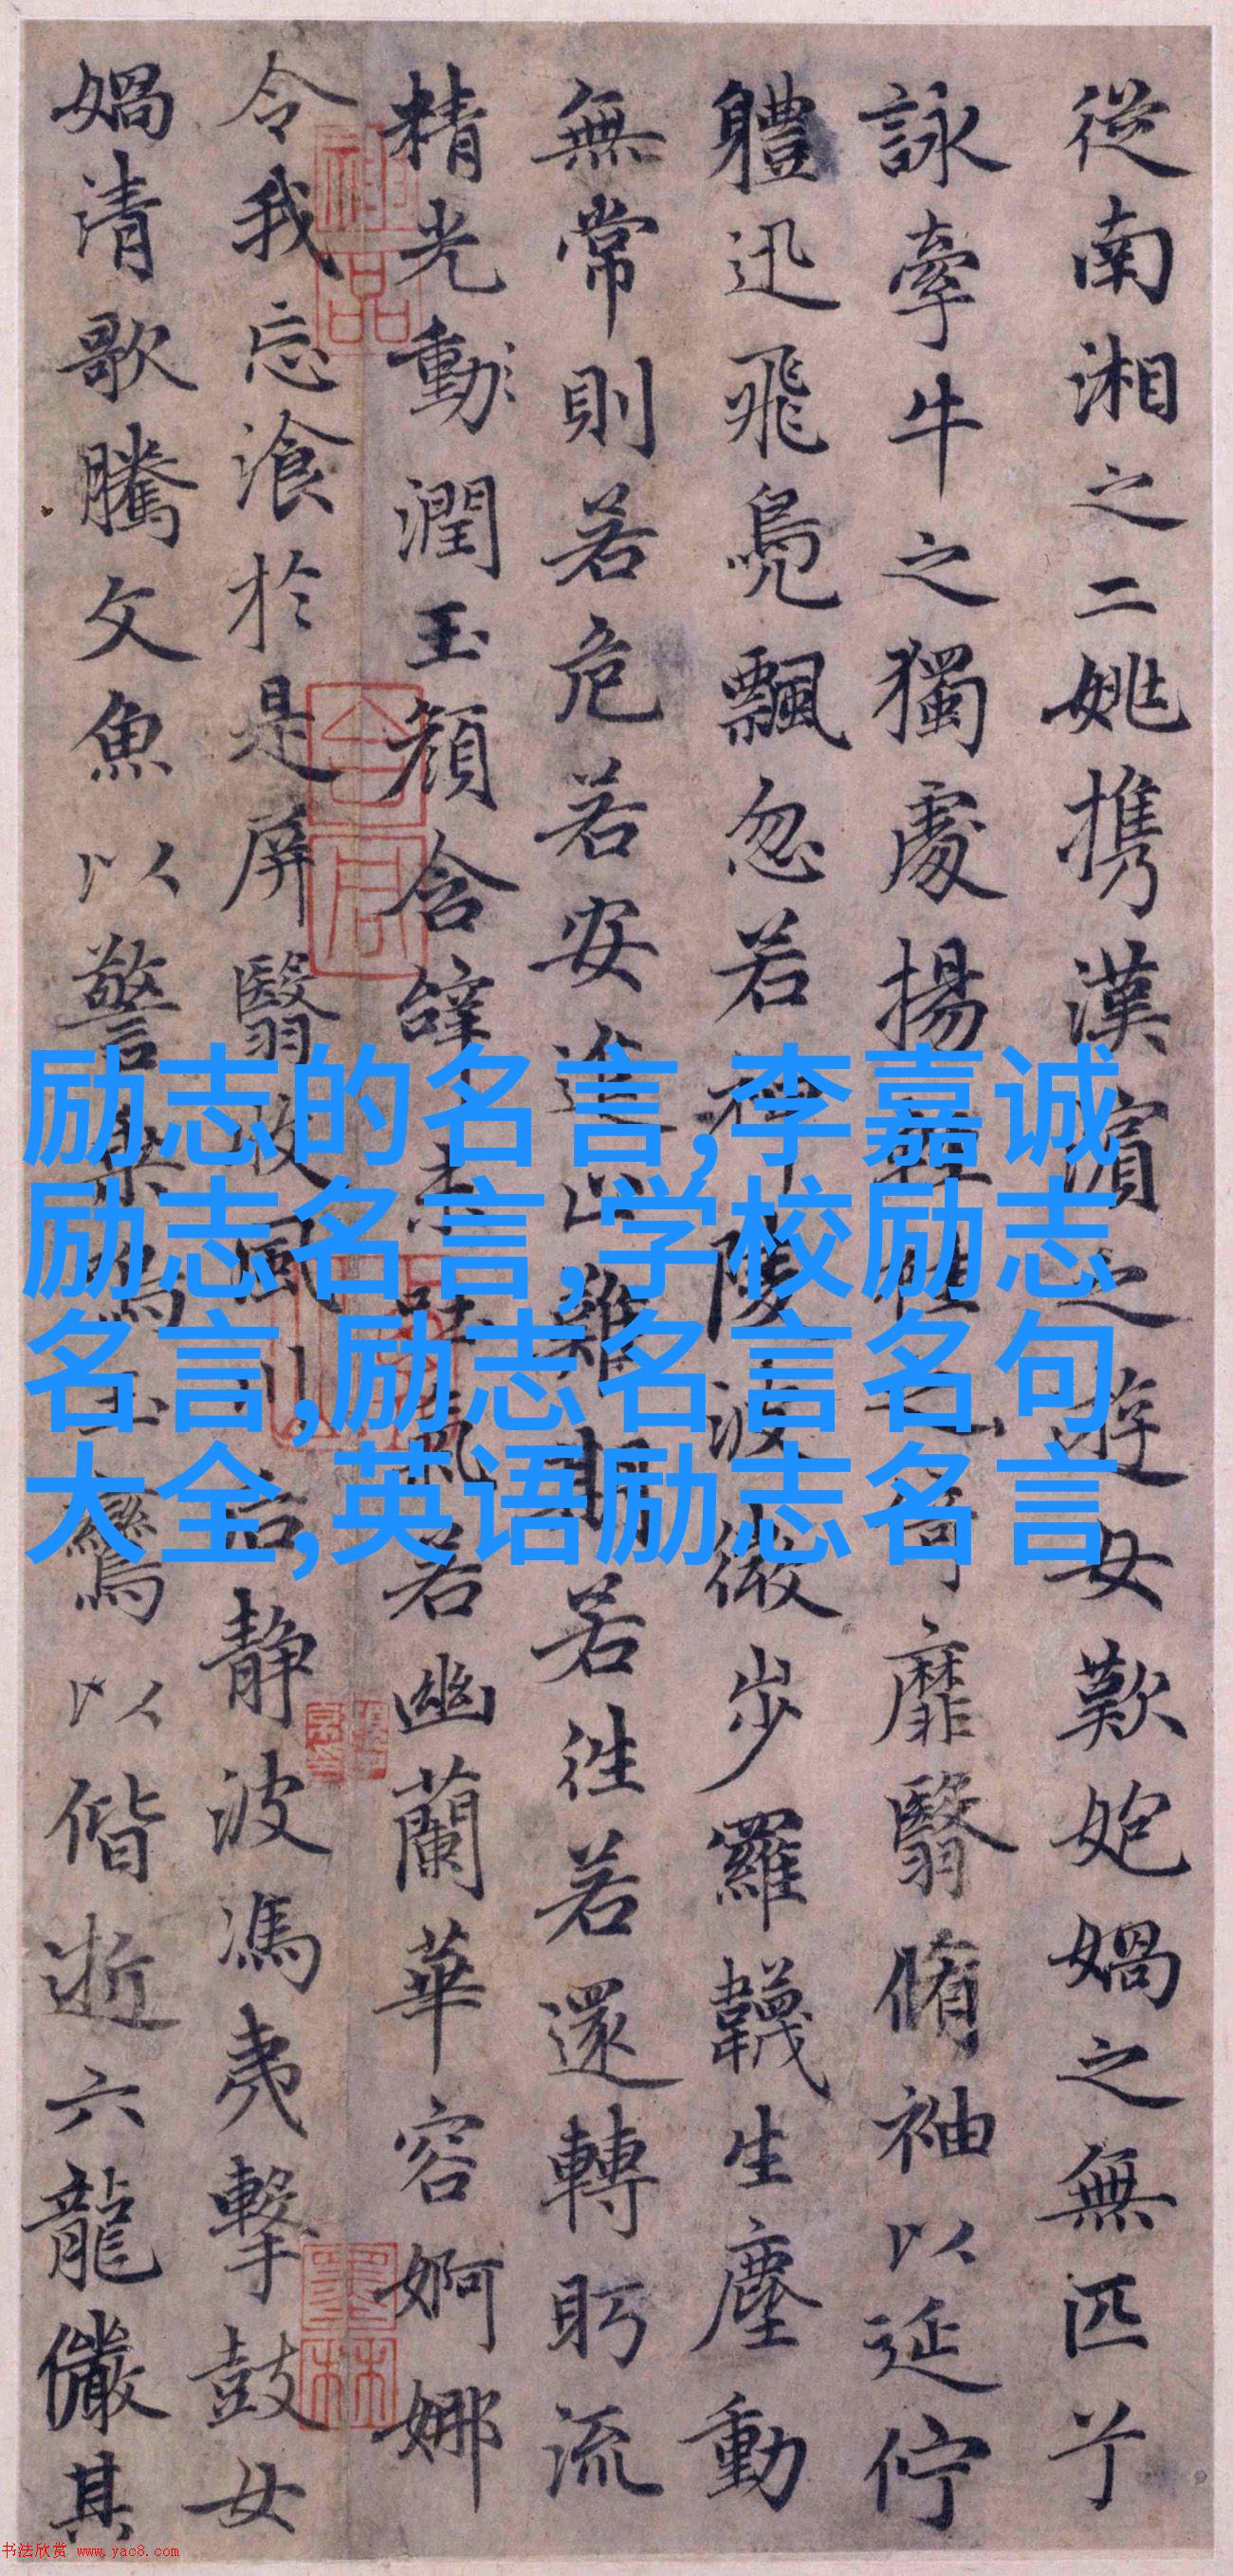 從南湘之二姚携漢濱之遊女歎匏媧之無匹兮
詠牽牛之獨處揚輕袿之猗靡翳脩袖以延佇
體迅飛鳧飄忽若神陵波微步羅韈生塵動
無常則若危若安進止難期若往若還轉眄流
精光動潤玉顏含辭未吐氣若幽蘭華容婀娜
令我忘飡於是屏翳收風川后靜波馮夷擊鼓女
媧清歌騰文魚以警乘鳴玉鸞以偕逝六龍儼其
励志的名言,李嘉诚
励志名言,学校励志
名言,励志名言名句
大全,英语励志名言
书法欣赏 www.yac8.com